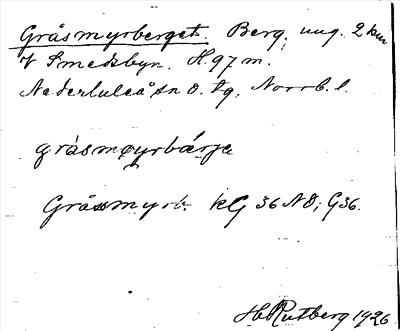 Gråsmyrberget. Berg, ung. 2 km
V Smedsbyn. H. 97 m.
Nederluleå sn o. tg. Norrb. l.
gråsmyrbärje
Gråsmyrb. kG 36 NO; G36.
H. Rutberg 1926